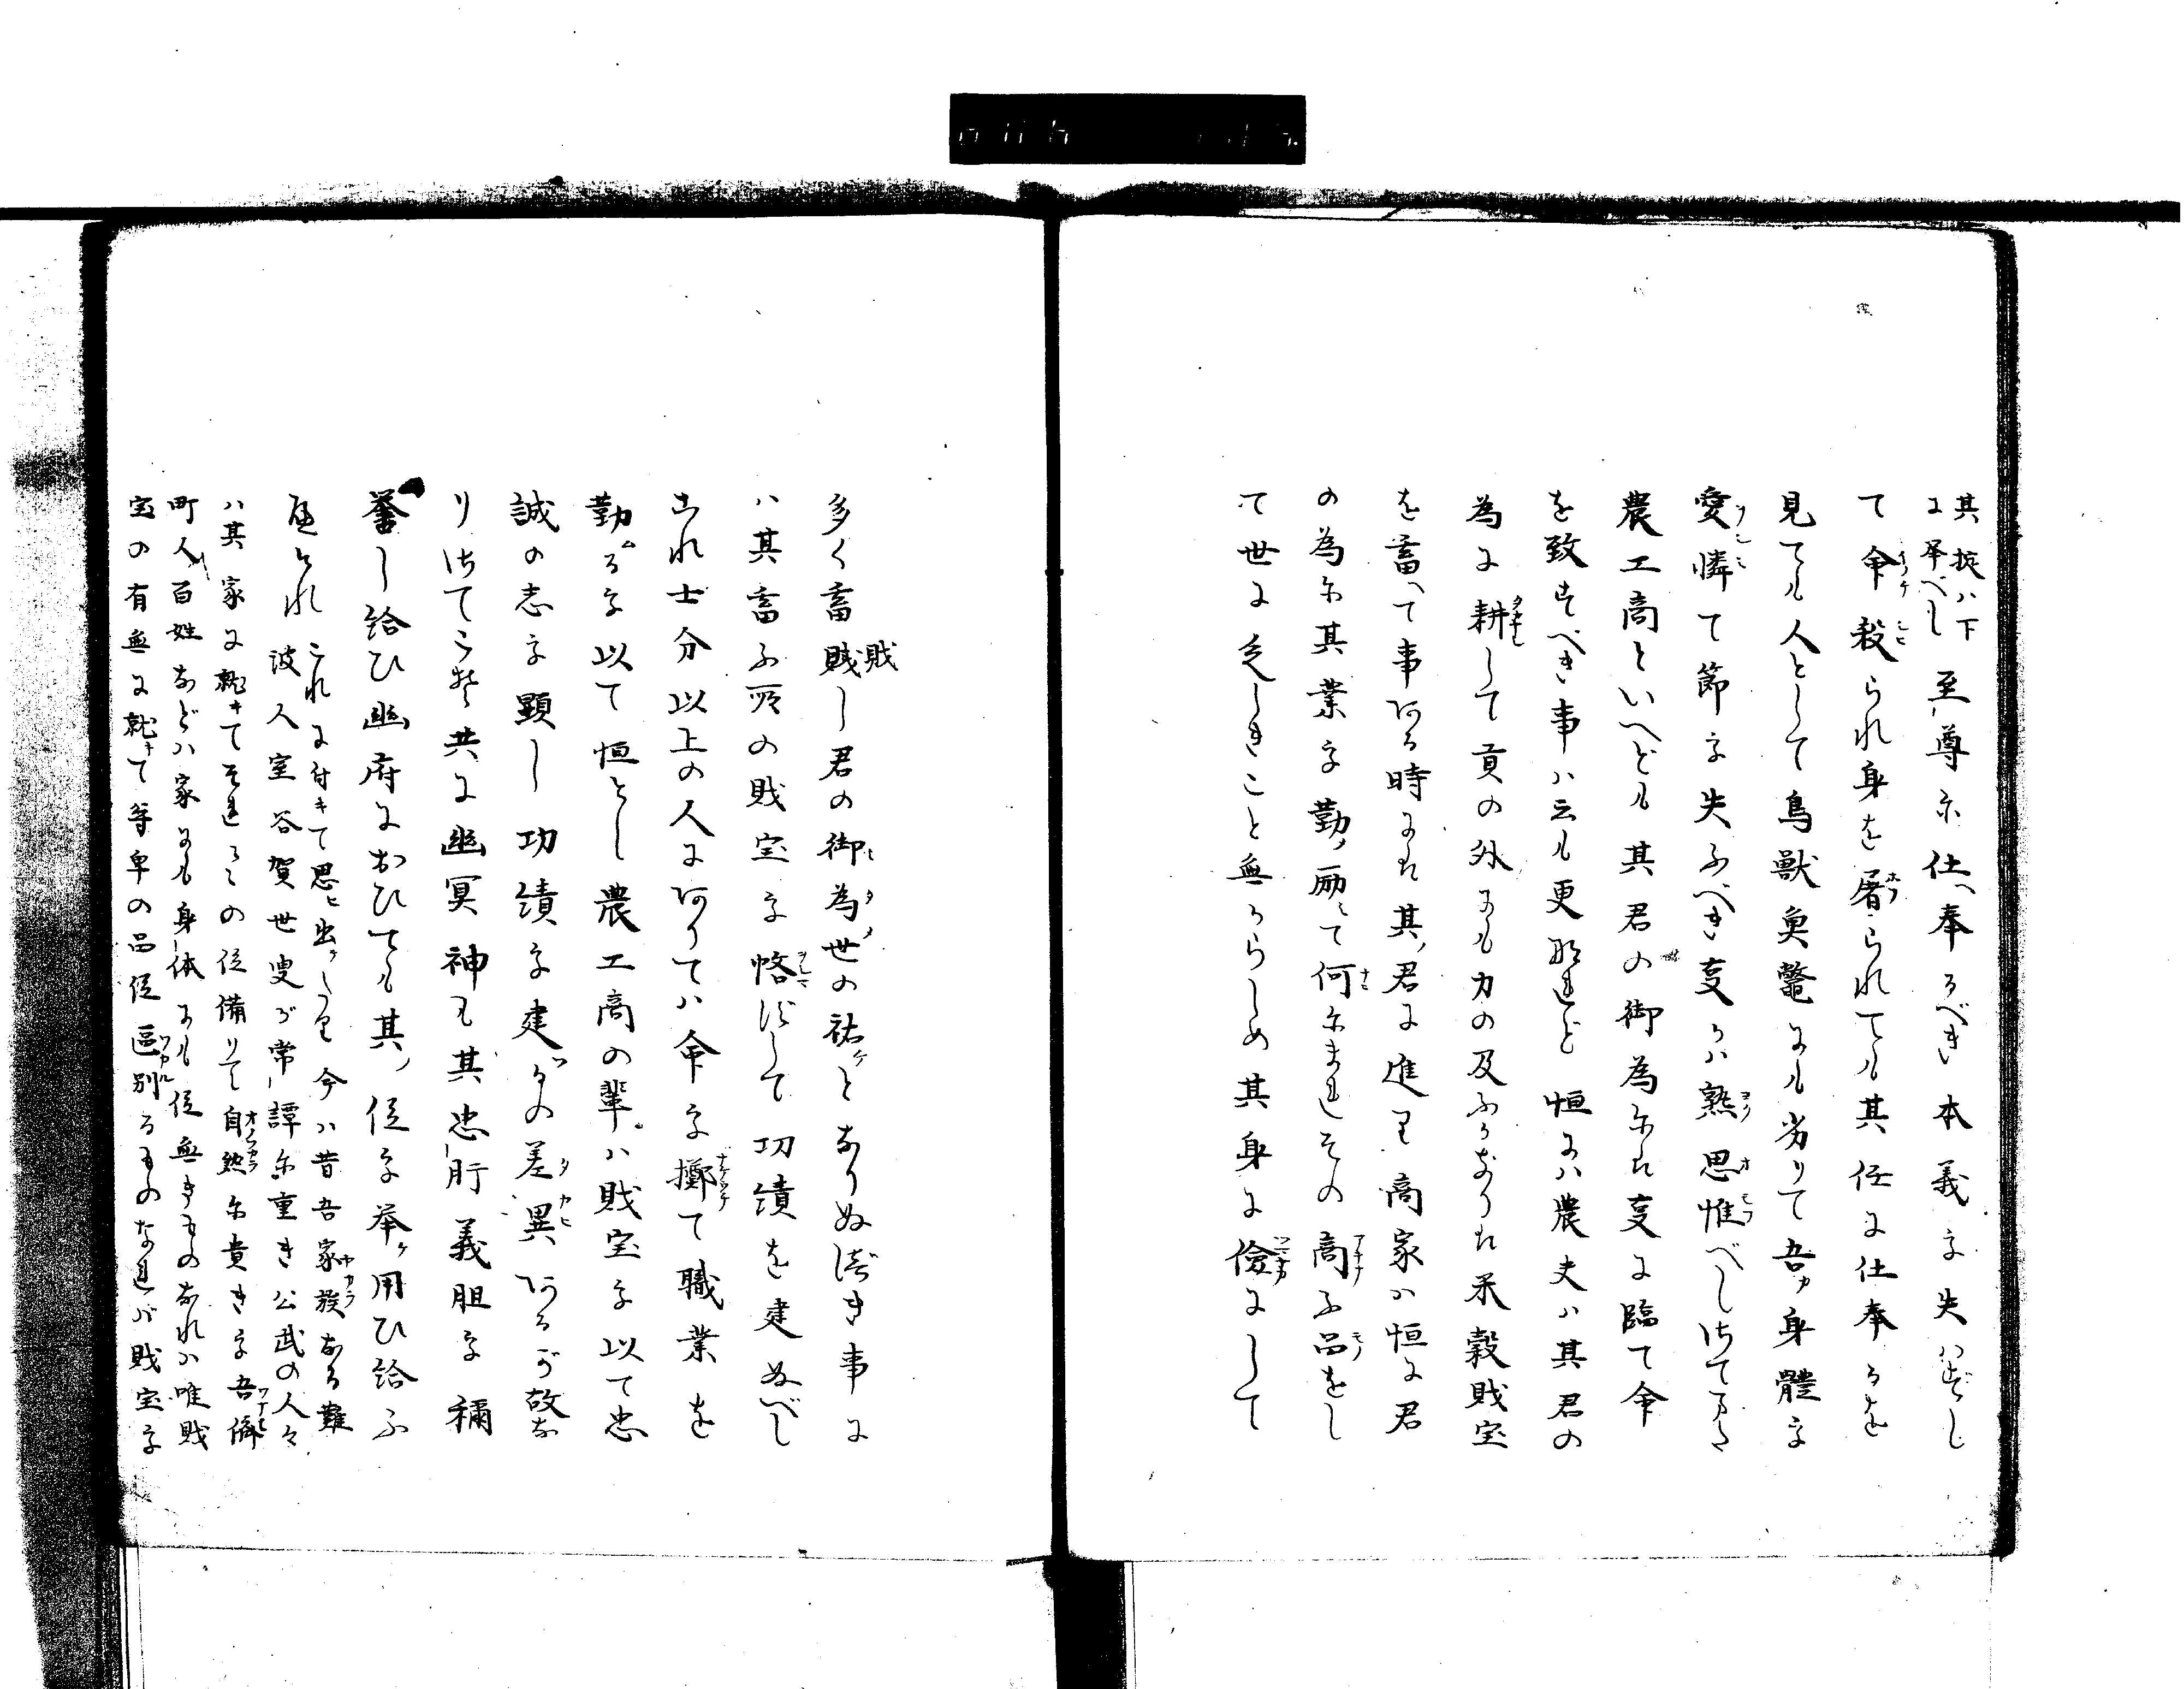 其掟ハ下
に挙べし
至尊尓仕ヘ奉るべき本義を失ハずし
て命殺られ身を屠られても其任に仕奉るを
見ても人として鳥獣魚鼈にも劣りて吾カ身體を
愛憐て節を失ふべき事かハ熟思惟べしさてまた
農工商といへども其君の御為尓れ事に臨て命
を致すべき事ハ云も更なれど恒にハ農夫ハ其君の
為に耕して貢の外にも力の及ふかきりハ米穀賎宝
を蓄ヘて事ある時にハ其ノ君に進り商家ハ恒に君
の為尓其業を勤メ励ミて何尓まれその商ふ品をし
て世に乏しきこと無からしめ其身に儉にして
多く蓄財し君の御為世の祐ケとなりぬべき事に
ハ其蓄ふ所の財宝を悋ずして功績を建ぬべし
これ士分以上の人にありてハ命を擲て職業を
勤ムるを以て恒とし農工商の輩ハ財宝を以て忠
誠の志を顕し功績を建ツるの差異あるが故な
りさてこそ共に幽冥神も其忠肝義胆を称
誉し給ひ幽府におひても其ノ位を挙ケ用ひ給ふ
なれ
これに付キて思ヒ出ヅるに今ハ昔吾家族なる難
波人室谷賀世叟が常ノ譚尓重き公武の人々
ハ其家に就キてそれ〳〵の位備りて自然尓貴きを吾儕
町人百姓などハ家にも身体にも位無きものなれハ唯財
宝の有無に就キて尊卑の品位區別るものなれバ財宝を